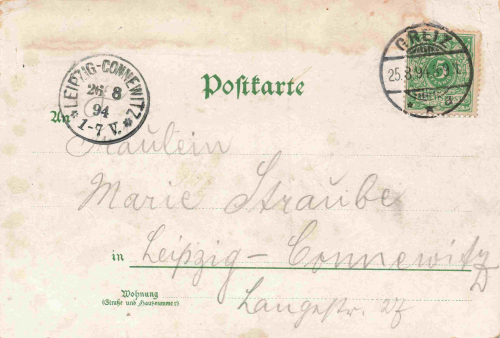 GREIZ
25.8.94
5
LEIPZIG-CONNEWITZ
26 8
94
1-7 V.
Postkarte
An
Fräulein
Marie Straube
in Leipzig-Connewitz
Wohnung
(Straße und Hausnummer)
Langestr. 27